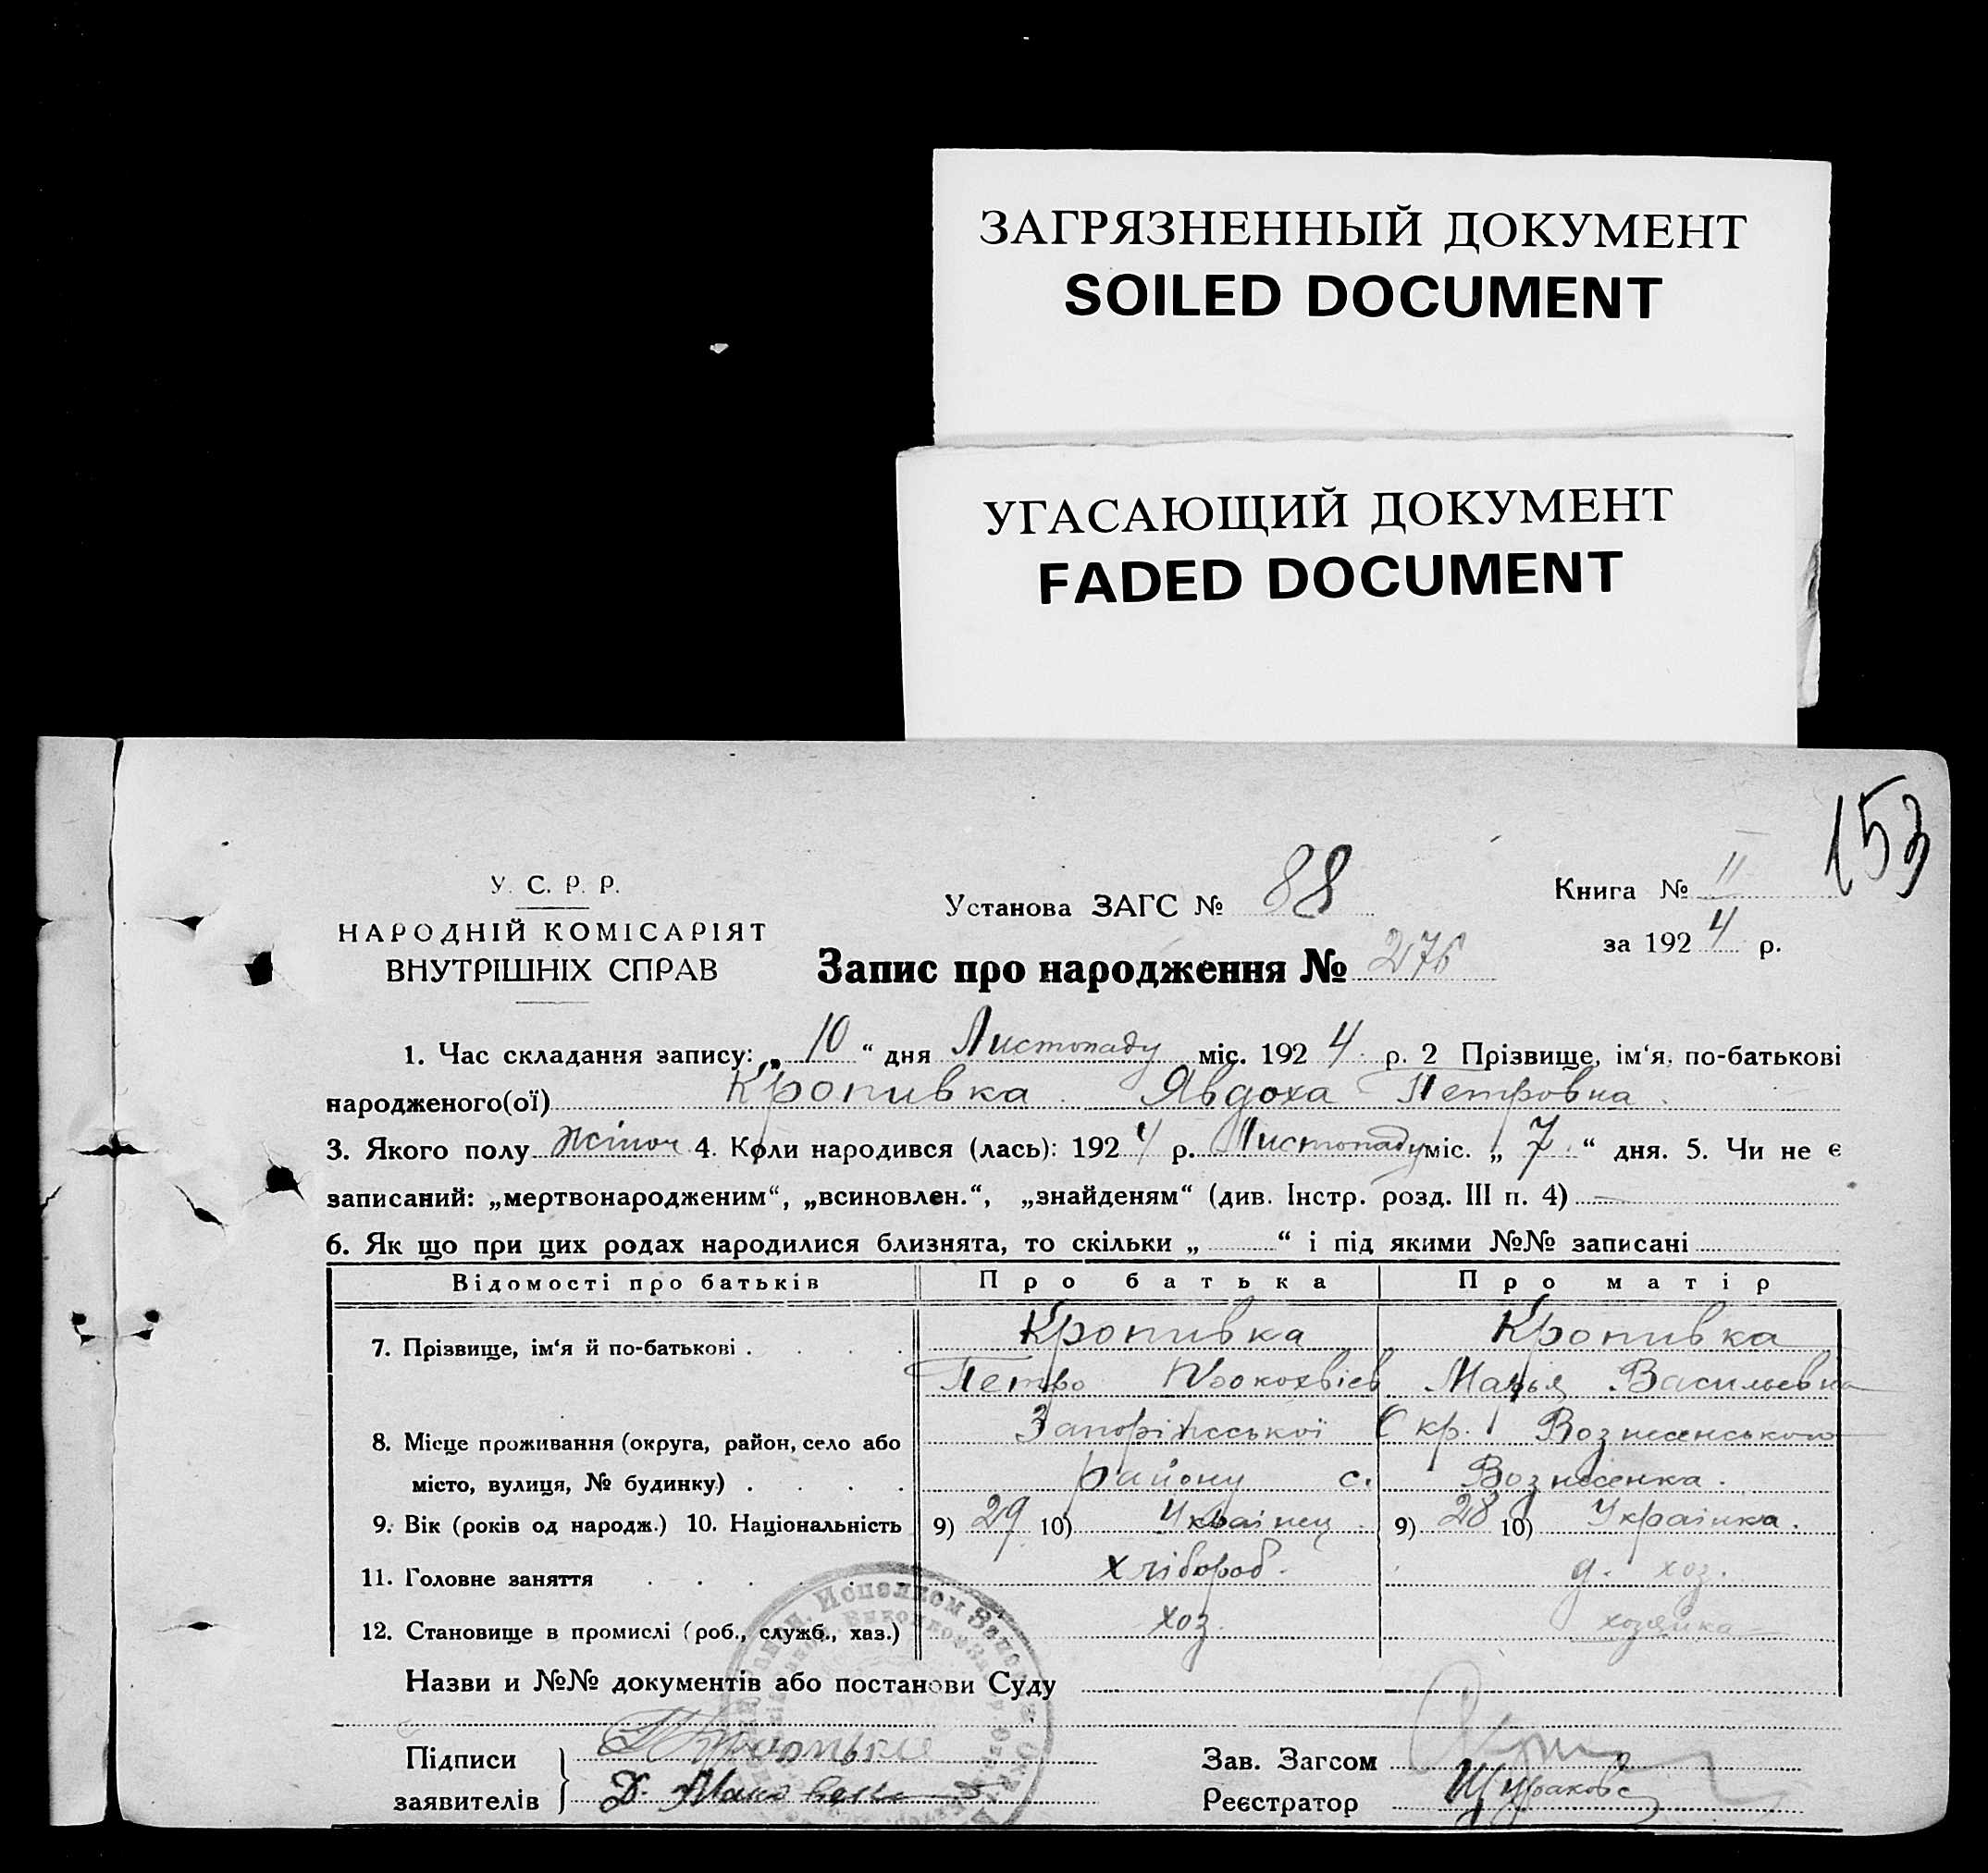 ЗАГРЯЗНЕННЫЙ ДОКУМЕНТ
SOILED DOCUMENT
УГАСАЮЩИЙ ДОКУМЕНТ
FADED DOCUMENT
153
У. С. Р. Р.
НАРОДНІЙ КОМІСАРІЯТ
ВНУТРІШНІХ СПРАВ
Установа ЗАГС № 88
Запис про народження № 276
Книга № II
за 1924 р.
1. Час складання запису: „10“ дня Листопаду міс. 1924 р. 2 Прізвище, ім‘я, по-батькові
народженого(ої) Кропивка Явдоха Петровна
3. Якого полу жіноч 4. Коли народився (лась): 1924 р. Листопаду міс. „7“ дня. 5. Чи не є
записаний: „мертвонародженим“, „всиновлен.“, „знайденям“ (див. Інстр. розд. III п. 4)
6. Як що при цих родах народилися близнята, то скільки „ “ і під якими №№ записані
Відомості про батьків Про батька Про матір
7. Прізвище, ім‘я й по-батькові Кропивка Кропивка
Петро Прокохвіев Марья Васильевна
8. Місце проживання (округа, район, село або Запоріжської Окр. Вознесенського
місто, вулиця, № будинку) району с. Вознесенка.
9. Вік (років од народж.) 10. Національність 9) 29 10) Українець 9) 28 10) Українка.
11. Головне заняття хлібороб. д. хоз.
12. Становище в промислі (роб., служб., хаз.) хоз. хозяйка
Назви и №№ документів або постанови Суду
Підписи
заявителів Д.
Зав. Загсом
Реєстратор
Исполком